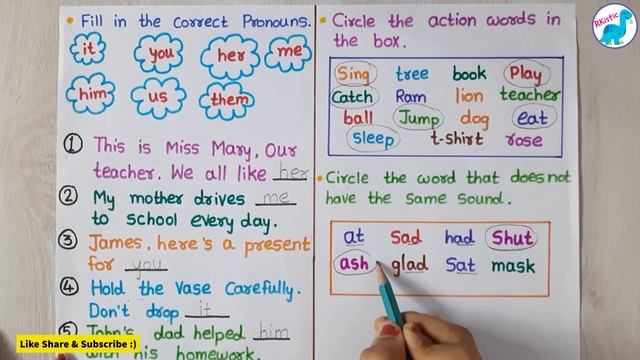 Fill in the Correct Pronouns.
it you her me
him us them
1 This is Miss Mary, Our
teacher. We all like her
2 My mother drives me
to school every day.
3 James, here's a present
for you
4 Hold the Vase Carefully.
Don't drop it
5 John's dad helped him
with his homework.
Circle the action words in
the box.
Sing tree book Play
Catch Ram lion teacher
ball Jump dog eat
Sleep t-shirt rose
Circle the word that does not
have the Same Sound.
at Sad had Shut
ash glad Sat mask
RKistic
Like Share & Subscribe :)